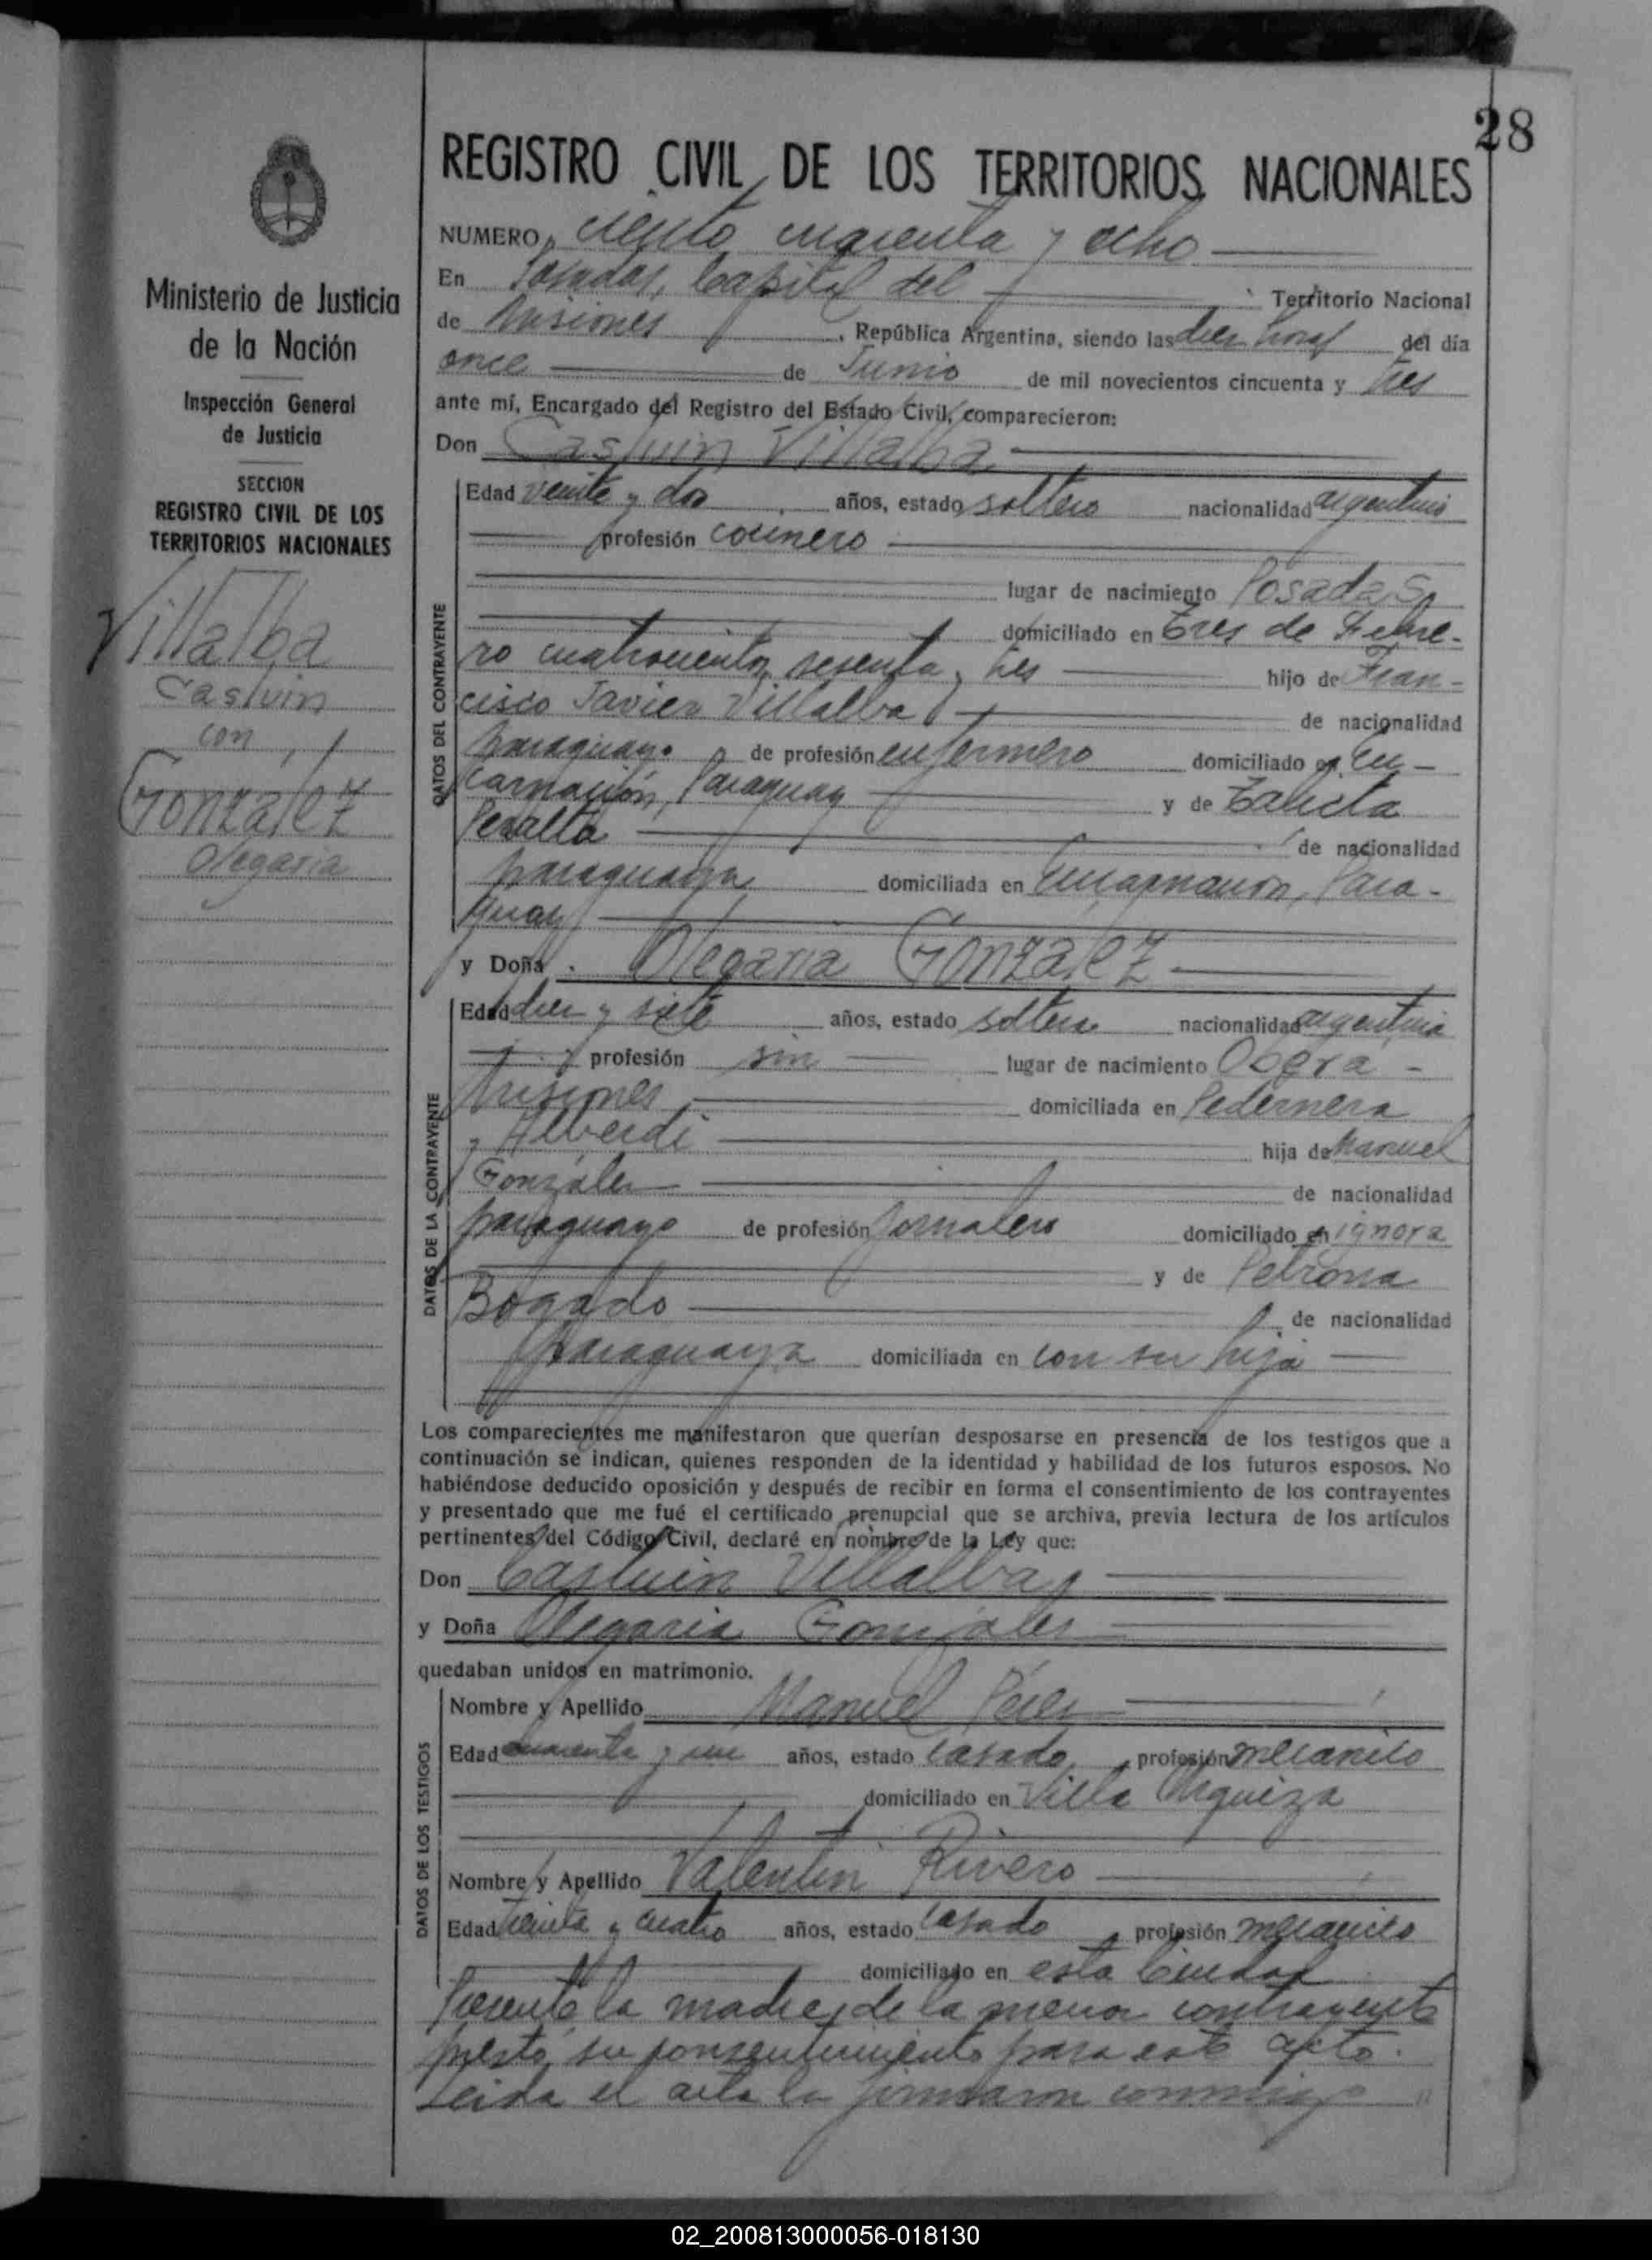 28
REGISTRO CIVIL DE LOS TERRITORIOS NACIONALES
NUMERO ciento cuarenta y ocho
En Posadas, Capital del Territorio Nacional
de Misiones, República Argentina, siendo las diez horas del día
once de Junio de mil novecientos cincuenta y tres
ante mí, Encargado del Registro del Estado Civil, comparecieron:
Don Casluin Villalba
Edad veinte y dos años, estado soltero nacionalidad argentino
profesión cocinero
lugar de nacimiento Posadas
domiciliado en Tres de Febre-
ro cuatrocientos sesenta y tres hijo de Fran-
cisco Javier Villalba de nacionalidad
paraguayo de profesión enfermero domiciliado en En-
carnación, Paraguay y de
Peralta de nacionalidad
paraguaya domiciliada en Encarnación, Para-
guay
y Doña Olegaria González
Edad diez y siete años, estado soltera nacionalidad argentina
profesión sin lugar de nacimiento Oberá -
Misiones domiciliada en Pedernera
y Alberdi hija de Manuel
González de nacionalidad
paraguayo de profesión jornalero domiciliado en ignora
y de Petrona
Bogado de nacionalidad
paraguaya domiciliada en con su hija
Los comparecientes me manifestaron que querían desposarse en presencia de los testigos que a
continuación se indican, quienes responden de la identidad y habilidad de los futuros esposos. No
habiéndose deducido oposición y después de recibir en forma el consentimiento de los contrayentes
y presentado que me fué el certificado prenupcial que se archiva, previa lectura de los artículos
pertinentes del Código Civil, declaré en nombre de la Ley que:
Don Casluin Villalba
y Doña Olegaria González
quedaban unidos en matrimonio.
Nombre y Apellido Manuel Pérez
Edad cuarenta y un años, estado casado profesión mecánico
domiciliado en Villa Urquiza
Nombre y Apellido Valentin Rivero
Edad treinta y cuatro años, estado casado profesión mecánico
domiciliado en esta Ciudad
Presente la madre de la menor contrayente
prestó su consentimiento para este acto.
Leida el acta la firmaron conmigo
DATOS DEL CONTRAYENTE
DATOS DE LA CONTRAYENTE
DATOS DE LOS TESTIGOS
Ministerio de Justicia
de la Nación
Inspección General
de Justicia
SECCION
REGISTRO CIVIL DE LOS
TERRITORIOS NACIONALES
Villalba
Casluin
con
González
Olegaria
02_200813000056-018130